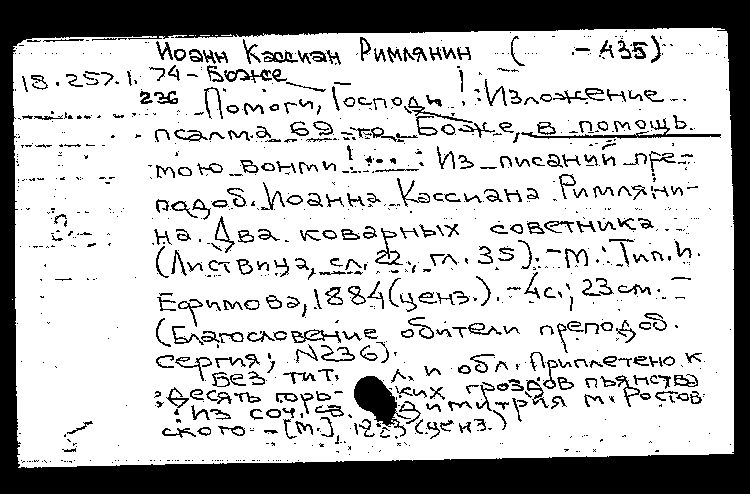 Иоанн Кассиан Римлянин ( -435)
18.257.1.74 - Боже
236 Помоги, Господи!: Изложение
псалма 69-го, Боже, в помощь
мою вонми!...: Из писаний пре-
подоб. Иоанна Кассиана Римляни-
на. Два коварных советника
(Листвица, сл. 22, гл. 35). - М.: Тип. И.
Ефимова, 1884 (ценз.). - 4с.; 23см. -
(Благословение обители преподоб.
Сергия; N236).
Без тит. л. и обл. Приплетено к
: Десять горь- ких гроздов пьянства
: Из соч. св. Димитрия м. Ростов
ского - [М.], 1883 (ценз.)